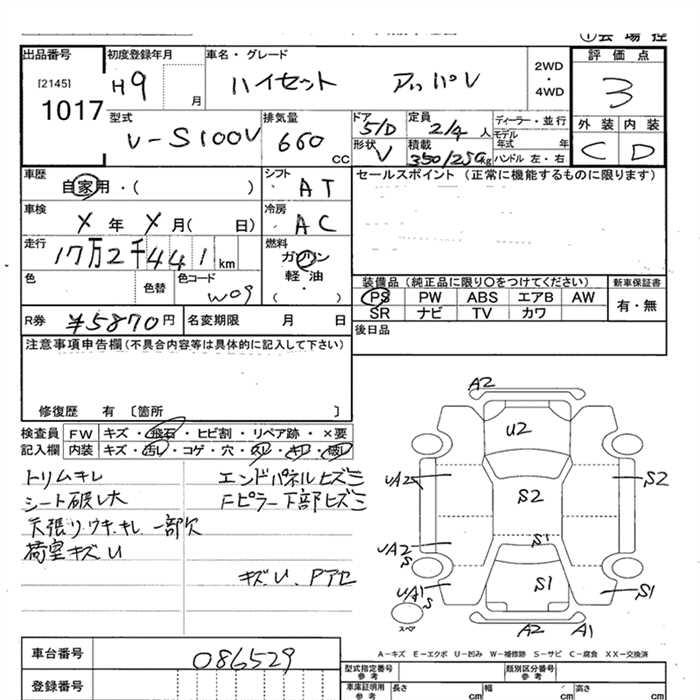 出品番号
[2145]
1017
初度登録年月
H9 月
車名・グレード
ハイゼット デッパV
2WD
・
4WD
評価点
3
外装 内装
C D
型式
V-S100V
排気量
660 cc
ドア
5/D
定員
2/4 人
ディーラー・並行
モデル
年式 年
形状
V
積載
350/250kg
ハンドル 左・右
車歴
自家用・( )
シフト
・AT
セールスポイント (正常に機能するものに限ります)
車検
X 年 X 月( 日)
冷房
・AC
走行
17万2千441 km
燃料
ガソリン
軽油
・
( )
色
色替
色コード
W09
装備品 (純正品に限り○をつけてください)
PS PW ABS エアB AW
SR ナビ TV カワ
新車保証書
有・無
R券 ¥5870円
名変期限 月 日
後日品
注意事項申告欄(不具合内容等は具体的に記入して下さい)
修復歴 有 〔箇所 〕
検査員 FW キズ・飛石・ヒビ割・リペア跡・×要
記入欄 内装 キズ・汚レ・コゲ・穴・スレ・キレ・破レ
トリムキレ
シート破レ大
天張リウキ、キレ 一部欠
荷室キズU
エンドパネルヒズミ
Fピラー下部ヒズミ
キズU、Pアセ
A2
U2
UA2
S2
S2
UA2
S
S1
UA1
S
S1
S1
スペア
A2
A1
A-キズ E-エクボ U-凹み W-補修跡 S-サビ C-腐食 XX-交換済
車台番号
086529
登録番号
型式指定番号
参考
類別区分番号
参考
車庫証明用
参考
長さ cm
幅 cm
高さ cm